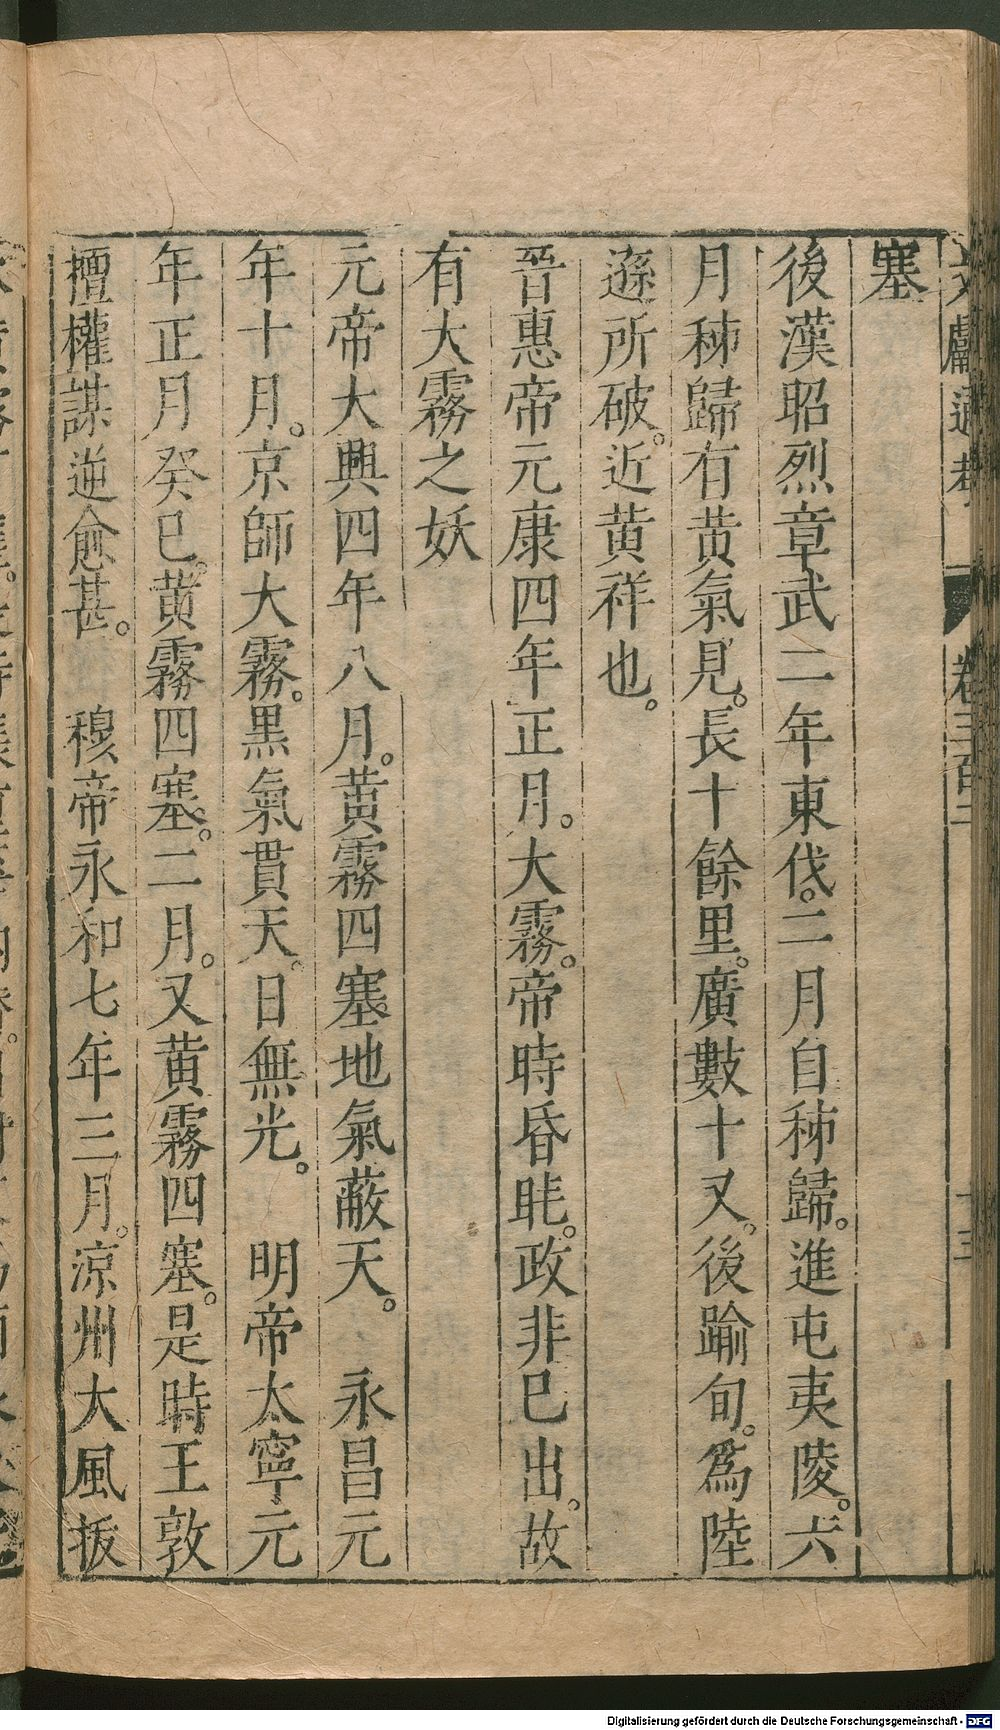 文獻通考 卷三百二 十三
塞
後漢昭烈章武二年東伐。二月自秭歸。進屯夷陵。六
月秭歸有黄氣見。長十餘里。廣數十又。後踰旬。爲陸
遜所破。近黄祥也。
晉惠帝元康四年正月。大霧。帝時昏眊。政非已出。故
有大霧之妖
元帝大興四年八月。黄霧四塞。地氣蔽天。 永昌元
年十月。京師大霧。黑氣貫天。日無光。 明帝太寧元
年正月癸巳。黄霧四塞。二月。又黄霧四塞。是時王敦
擅權謀逆愈甚。 穆帝永和七年三月。涼州大風拔
Digitalisierung gefördert durch die Deutsche Forschungsgemeinschaft - DFG